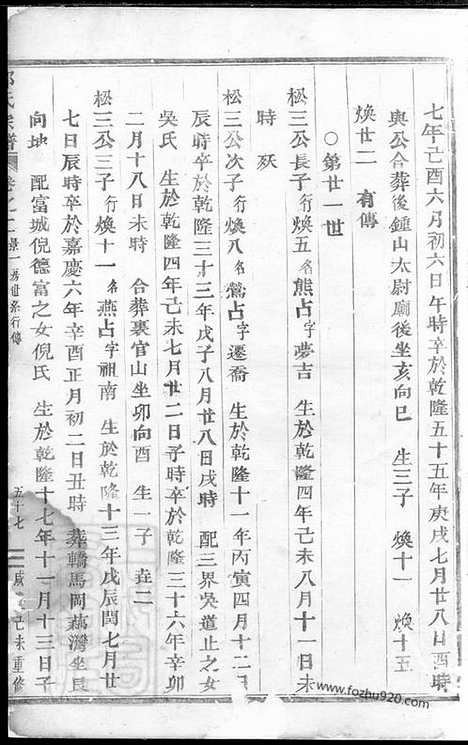 七年己酉六月初六日午時卒於乾隆五十五年庚戌七月廿八日酉時
與公合葬後鍾山太尉廟後坐亥向巳 生三子 煥十一 煥十五
煥廿二 有傳
○第廿一世
松三公長子行煥五名熊占字夢吉 生於乾隆四年己未八月十一日未
時 殀
松三公次子行煥八名鶯占字遷喬 生於乾隆十一年丙寅四月十二日
辰時卒於乾隆三十三年戊子八月廿八日戌時 配三界吳道止之女
吳氏 生於乾隆四年己未七月廿二日子時卒於乾隆三十六年辛卯
二月十八日未時 合葬裏官山坐卯向酉 生一子 垚二
松三公三子行煥十一名燕占字祖南 生於乾隆十三年戊辰閏七月廿
七日辰時卒於嘉慶六年辛酉正月初二日丑時 葬轎馬岡藕灣坐艮
向坤 配富城倪德富之女倪氏 生於乾隆十七年十一月十三日子
氏宗譜 卷之二 景一房世系行傳 五十七 咸 己未重修
www.fozhu920.com